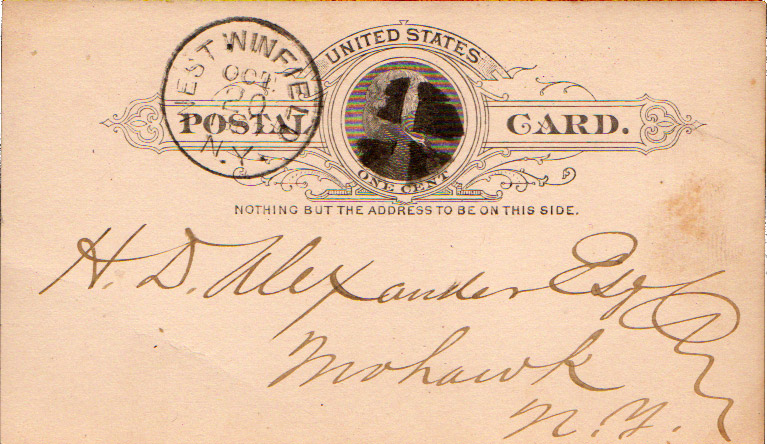 UNITED STATES
POSTAL CARD.
ONE CENT
WEST WINFIELD
OCT
20
N.Y.
NOTHING BUT THE ADDRESS TO BE ON THIS SIDE.
H. D. Alexander Esq
Mohawk
N. Y.